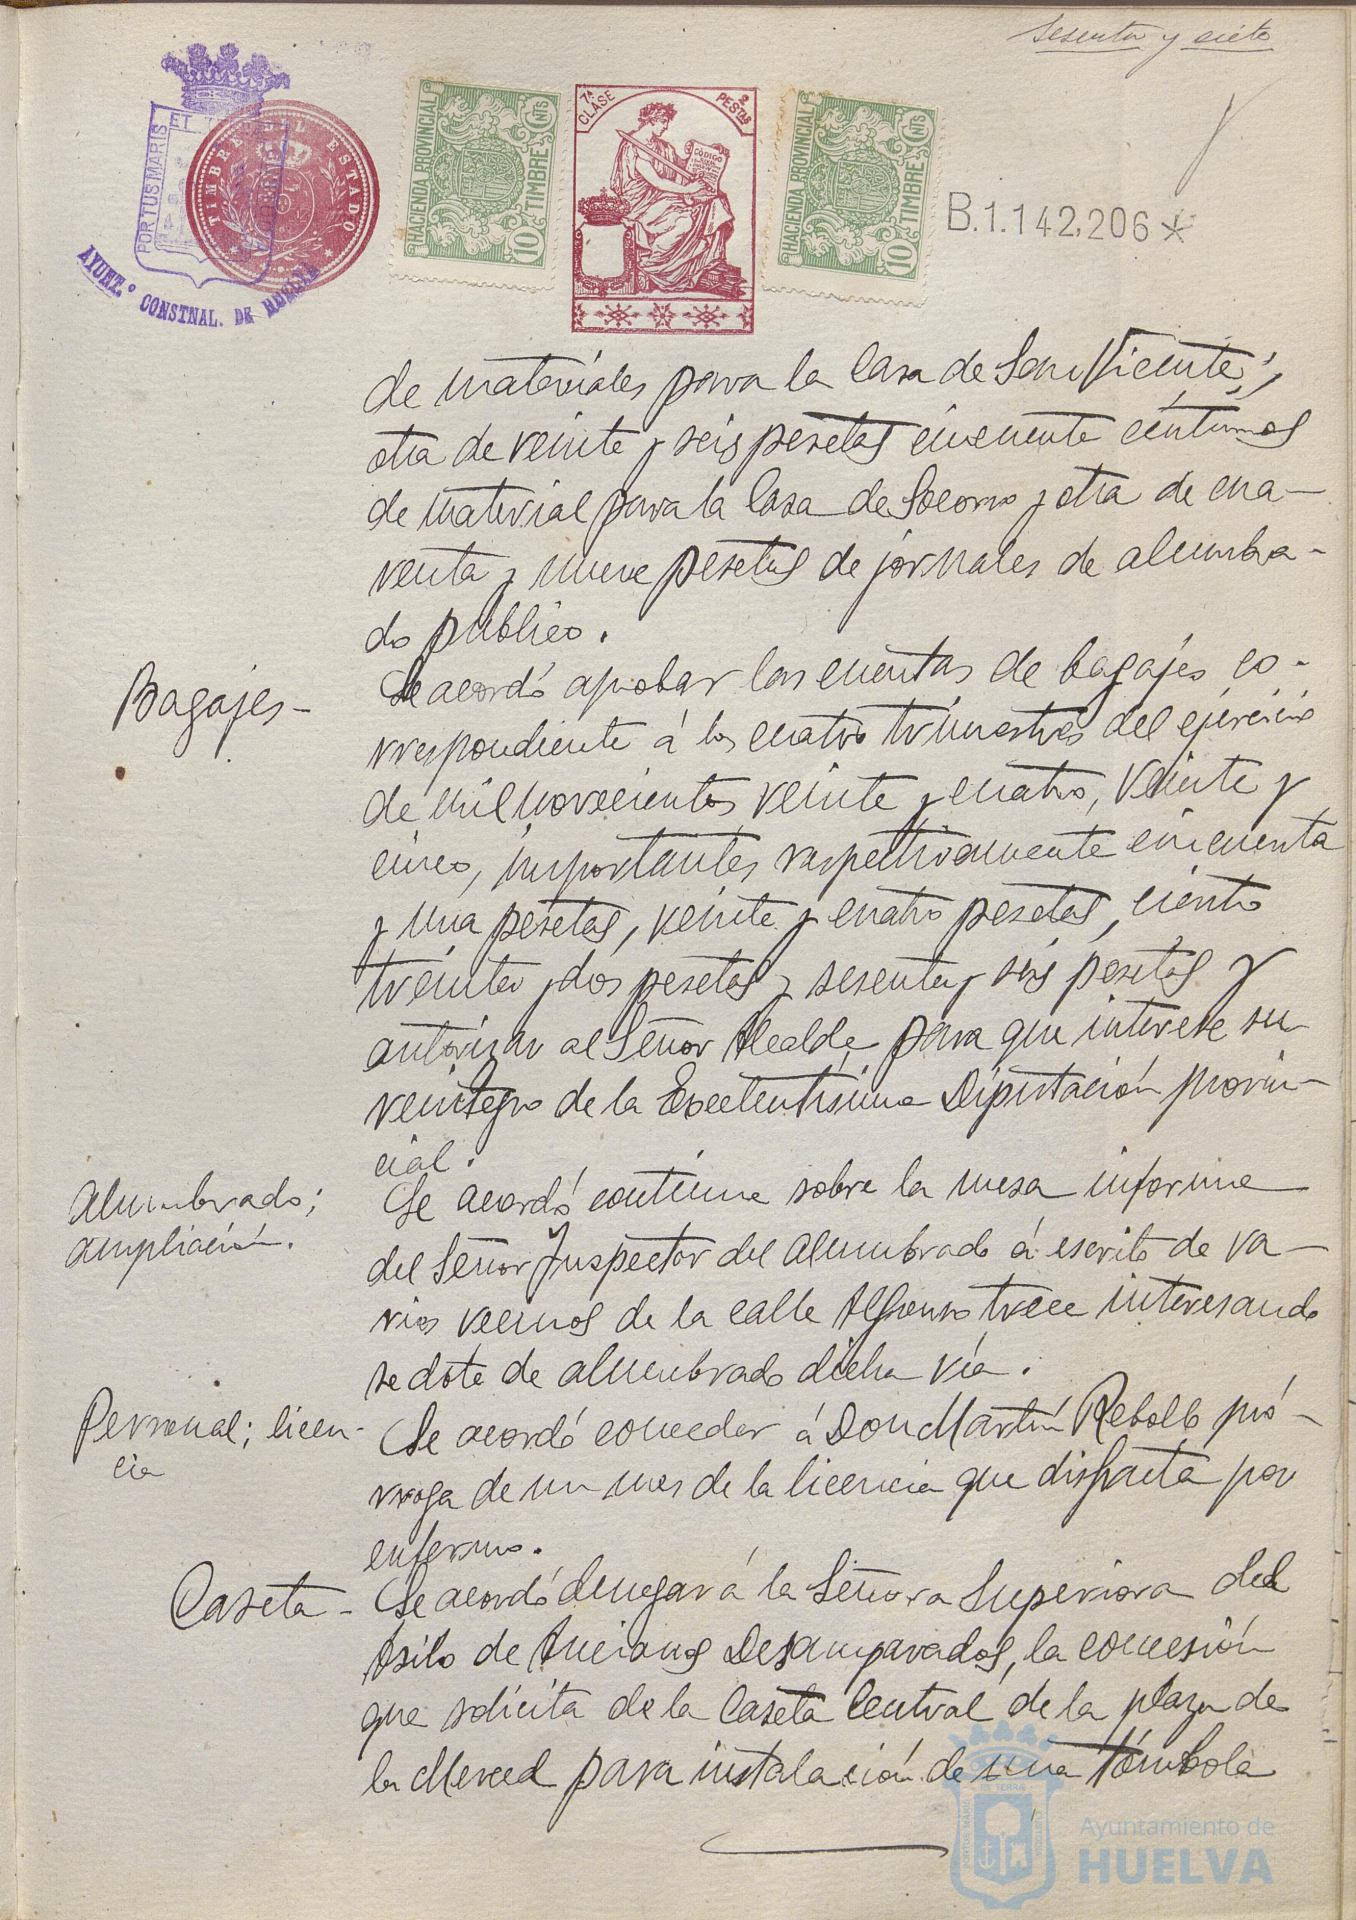 Sesenta y siete
PORTUS MARIS
ET
TIMBRE DEL ESTADO
AYUNT.º CONSTNAL. DE HUELVA
HACIENDA PROVINCIAL
10 TIMBRE CNTS
7ª CLASE
2 PESTAS
CODIGO
HACIENDA PROVINCIAL
10 TIMBRE CNTS
B.1.142,206*
de materiales para la Casa de San Vicente;
otra de veinte y seis pesetas cincuenta céntimos
de material para la Casa de Socorro y otra de cua-
renta y nueve pesetas de jornales de alumbra-
do público.
Bagajes-
Se acordó aprobar las cuentas de bagajes co-
rrespondiente á los cuatro trimestres del ejercicio
de mil novecientos veinte y cuatro, veinte y
cinco, importantes respectivamente cincuenta
y una pesetas, veinte y cuatro pesetas, ciento
treinta y dos pesetas y sesenta y seis pesetas y
autorizar al Señor Alcalde para que interese su
reintegro de la Excelentísima Diputación provin-
cial.
Alumbrado;
ampliación.
Se acordó continue sobre la mesa informe
del Señor Inspector del alumbrado á escrito de va-
rios vecinos de la calle Alfonso trece interesando
se dote de alumbrado dicha vía.
Personal; licen-
cia
Se acordó conceder á Don Martín Rebollo pró-
rroga de un mes de la licencia que disfruta por
enfermo.
Caseta-
Se acordó denegar á la Señora Superiora del
Asilo de Ancianos Desamparados, la concesión
que solicita de la Caseta Central de la plaza de
la Merced para instalación de una tómbola
Ayuntamiento de
HUELVA